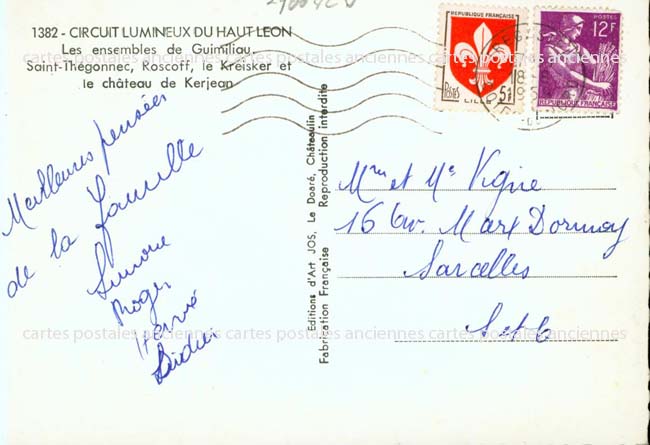 1382 - CIRCUIT LUMINEUX DU HAUT LEON
Les ensembles de Guimiliau,
Saint-Thégonnec, Roscoff, le Kreisker et
le château de Kerjean
Meilleures pensées
de la famille
Simone
Roger
Hervé
Didier
Editions d'Art JOS, Le Doaré, Châteaulin
Fabrication Française Reproduction interdite
REPUBLIQUE FRANÇAISE
Postes
LILLE
5F
POSTES
12F
REPUBLIQUE FRANÇAISE
18
Mme et Mr Vigne
16 av. Marx Dormoy
Sarcelles
S et O
cartes postales anciennes cartes postales anciennes cartes postales anciennes
cartes postales anciennes cartes postales anciennes cartes postales anciennes